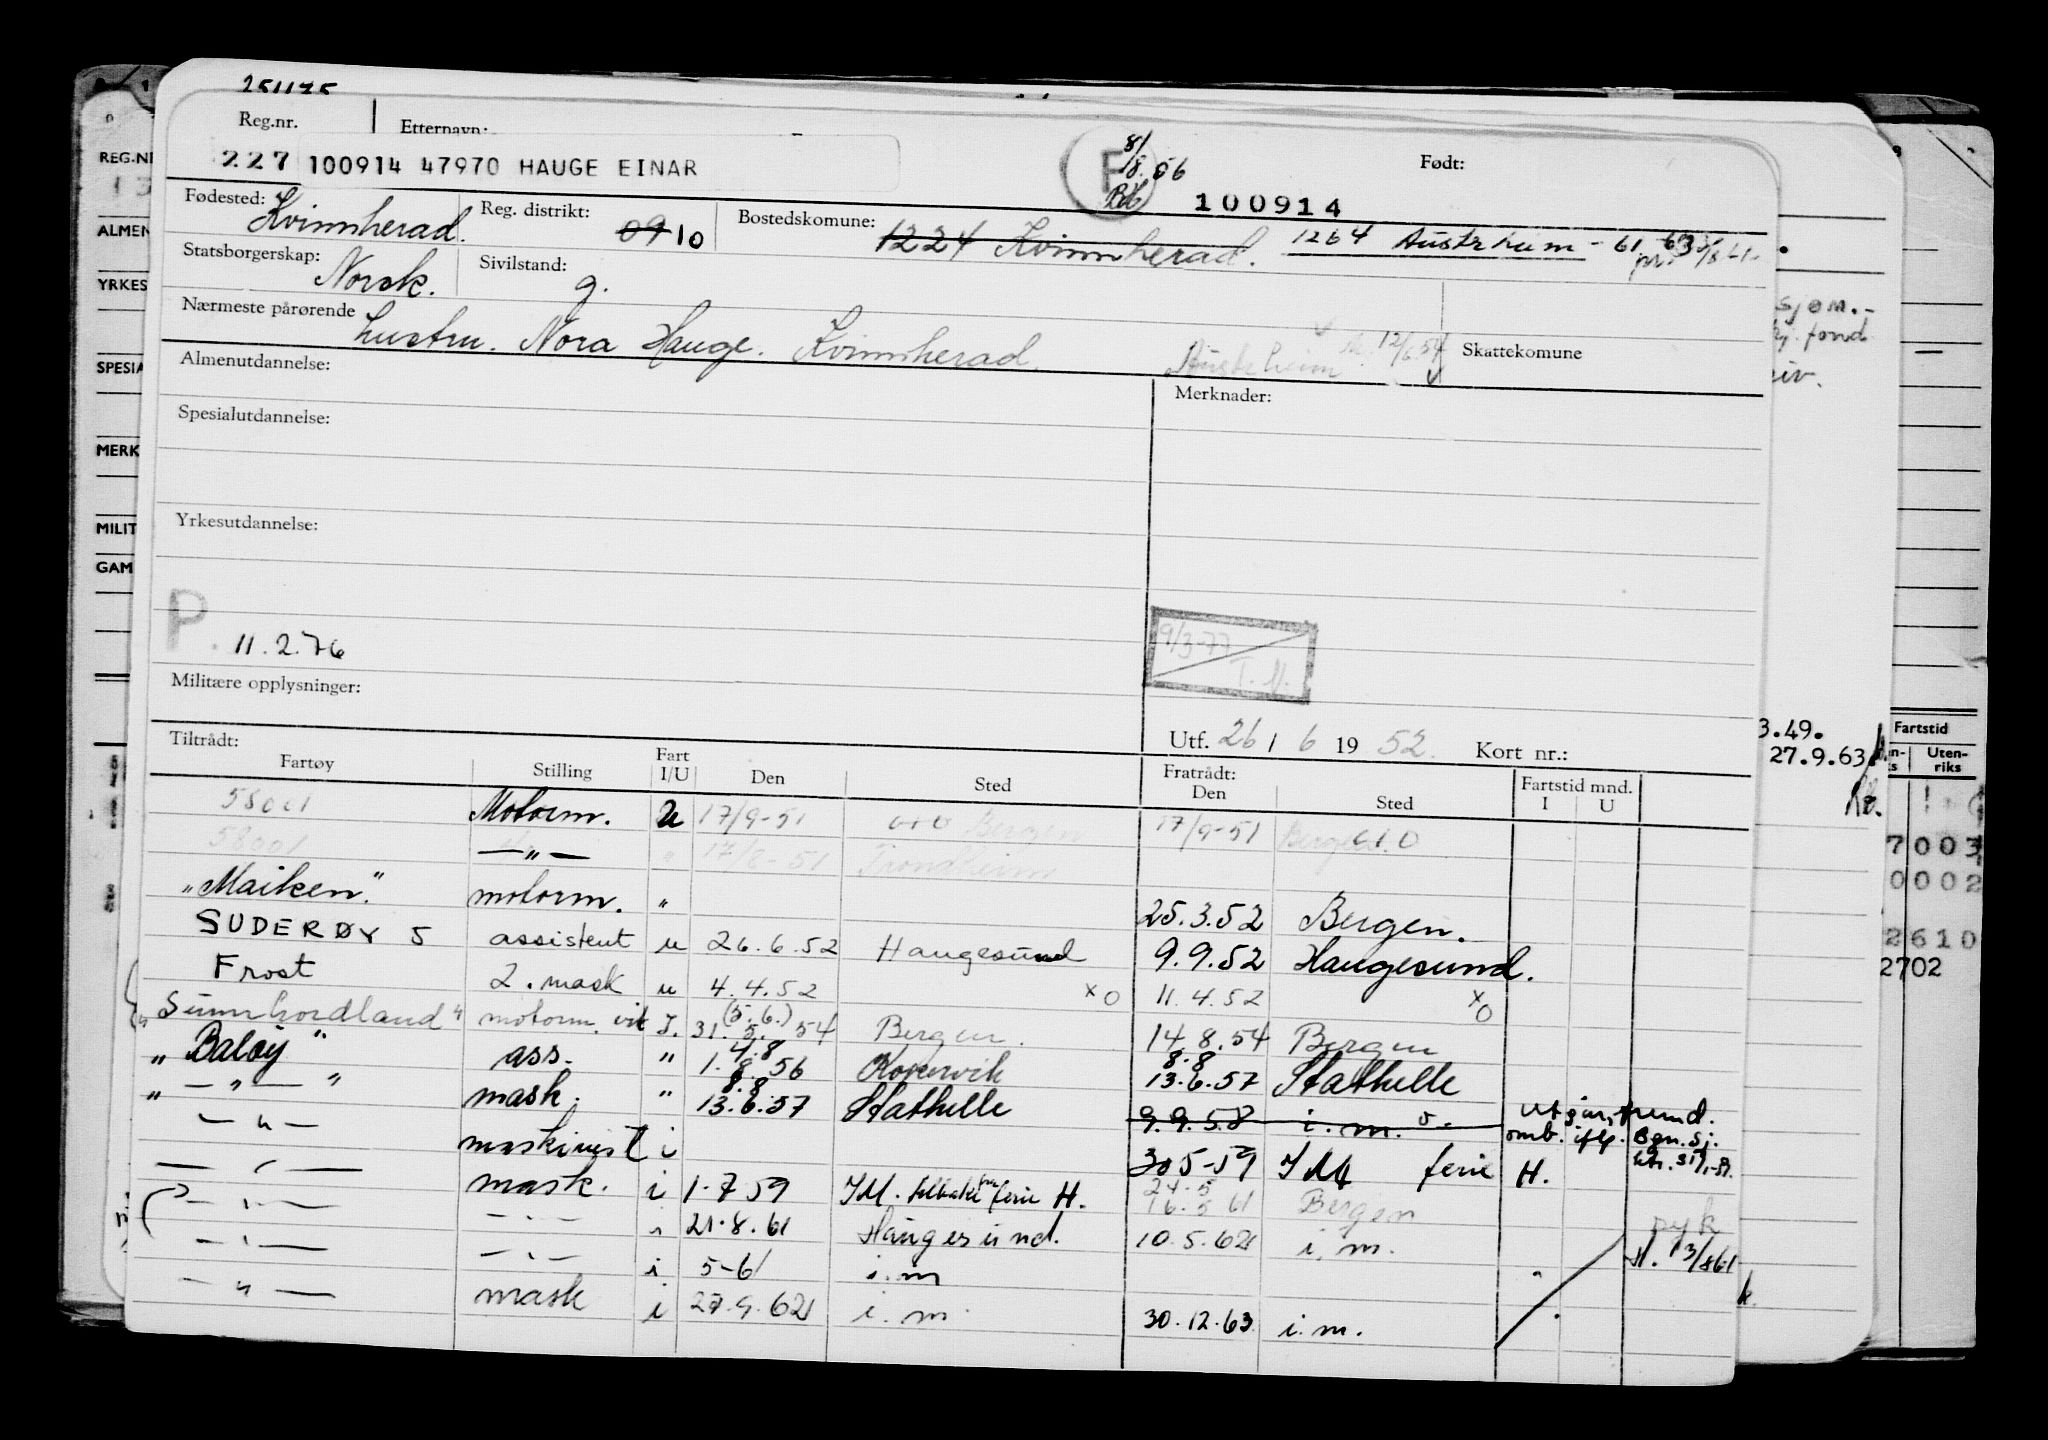 251175
Reg.nr. Etternavn:
227 100914 47970 HAUGE EINAR F 8/8.56 Født:
100914
Fødested: Kvinnherad. Reg. distrikt: 09 10 Bostedskommune: 1224 Kvinnherad. 1264 Austrheim - 61
Statsborgerskap: Norsk. Sivilstand: g.
Nærmeste pårørende
hustru. Nora Hauge. Kvinnherad Austrheim 12/6.54 Skattekommune
Almenutdannelse: Merknader:
Spesialutdannelse:
Yrkesutdannelse:
P. 11.2.76
9/3-77 T. M.
Militære opplysninger:
Utf. 26 / 6 19 52. Kort nr.:
Tiltrådt: Fratrådt:
Fartøy Stilling Fart I/U Den Sted Den Sted Fartstid mnd. I U
58001 Motorm. U 17/9-51 Bergen 17/9-51 Bergen
58001 —"— " 17/8-51 Trondheim
"Maiken." motorm. " 25.3.52 Bergen.
SUDERØY 5 assistent u 26.6.52 Haugesund 9.9.52 Haugesund.
Frost 2. mask u 4.4.52 x o 11.4.52 x o
"Sunnhordland" motorm. vik I. 31.5.54 (5.6.) Bergen. 14.8.54 Bergen
"Baløy" ass. " 1.8.56 4.8 Kopervik 13.6.57 8.8 Stathelle
" — " — " mask. " 13.6.57 8.8 Stathelle 9.9.58 i. m.
— " — maskinist i 30.5-59 I M ferie H.
— " — mask. i 1.7.59 I M. tilbake fra ferie H. 24.5 16.5 61 Bergen
— " — — " — " 21.8.61 Haugesund. 10.5.62 i. m.
— " — — " — i 5-61 i. m
— " — mask i 27.9.62 i. m. 30.12.63 i. m.
REG.NR
ALMEN
YRKES
SPESIA
MERK
MILIT
GAM
sjøm.-
fond
3.49.
27.9.63
Fartstid
Uten-
riks
7003
0002
2610
2702